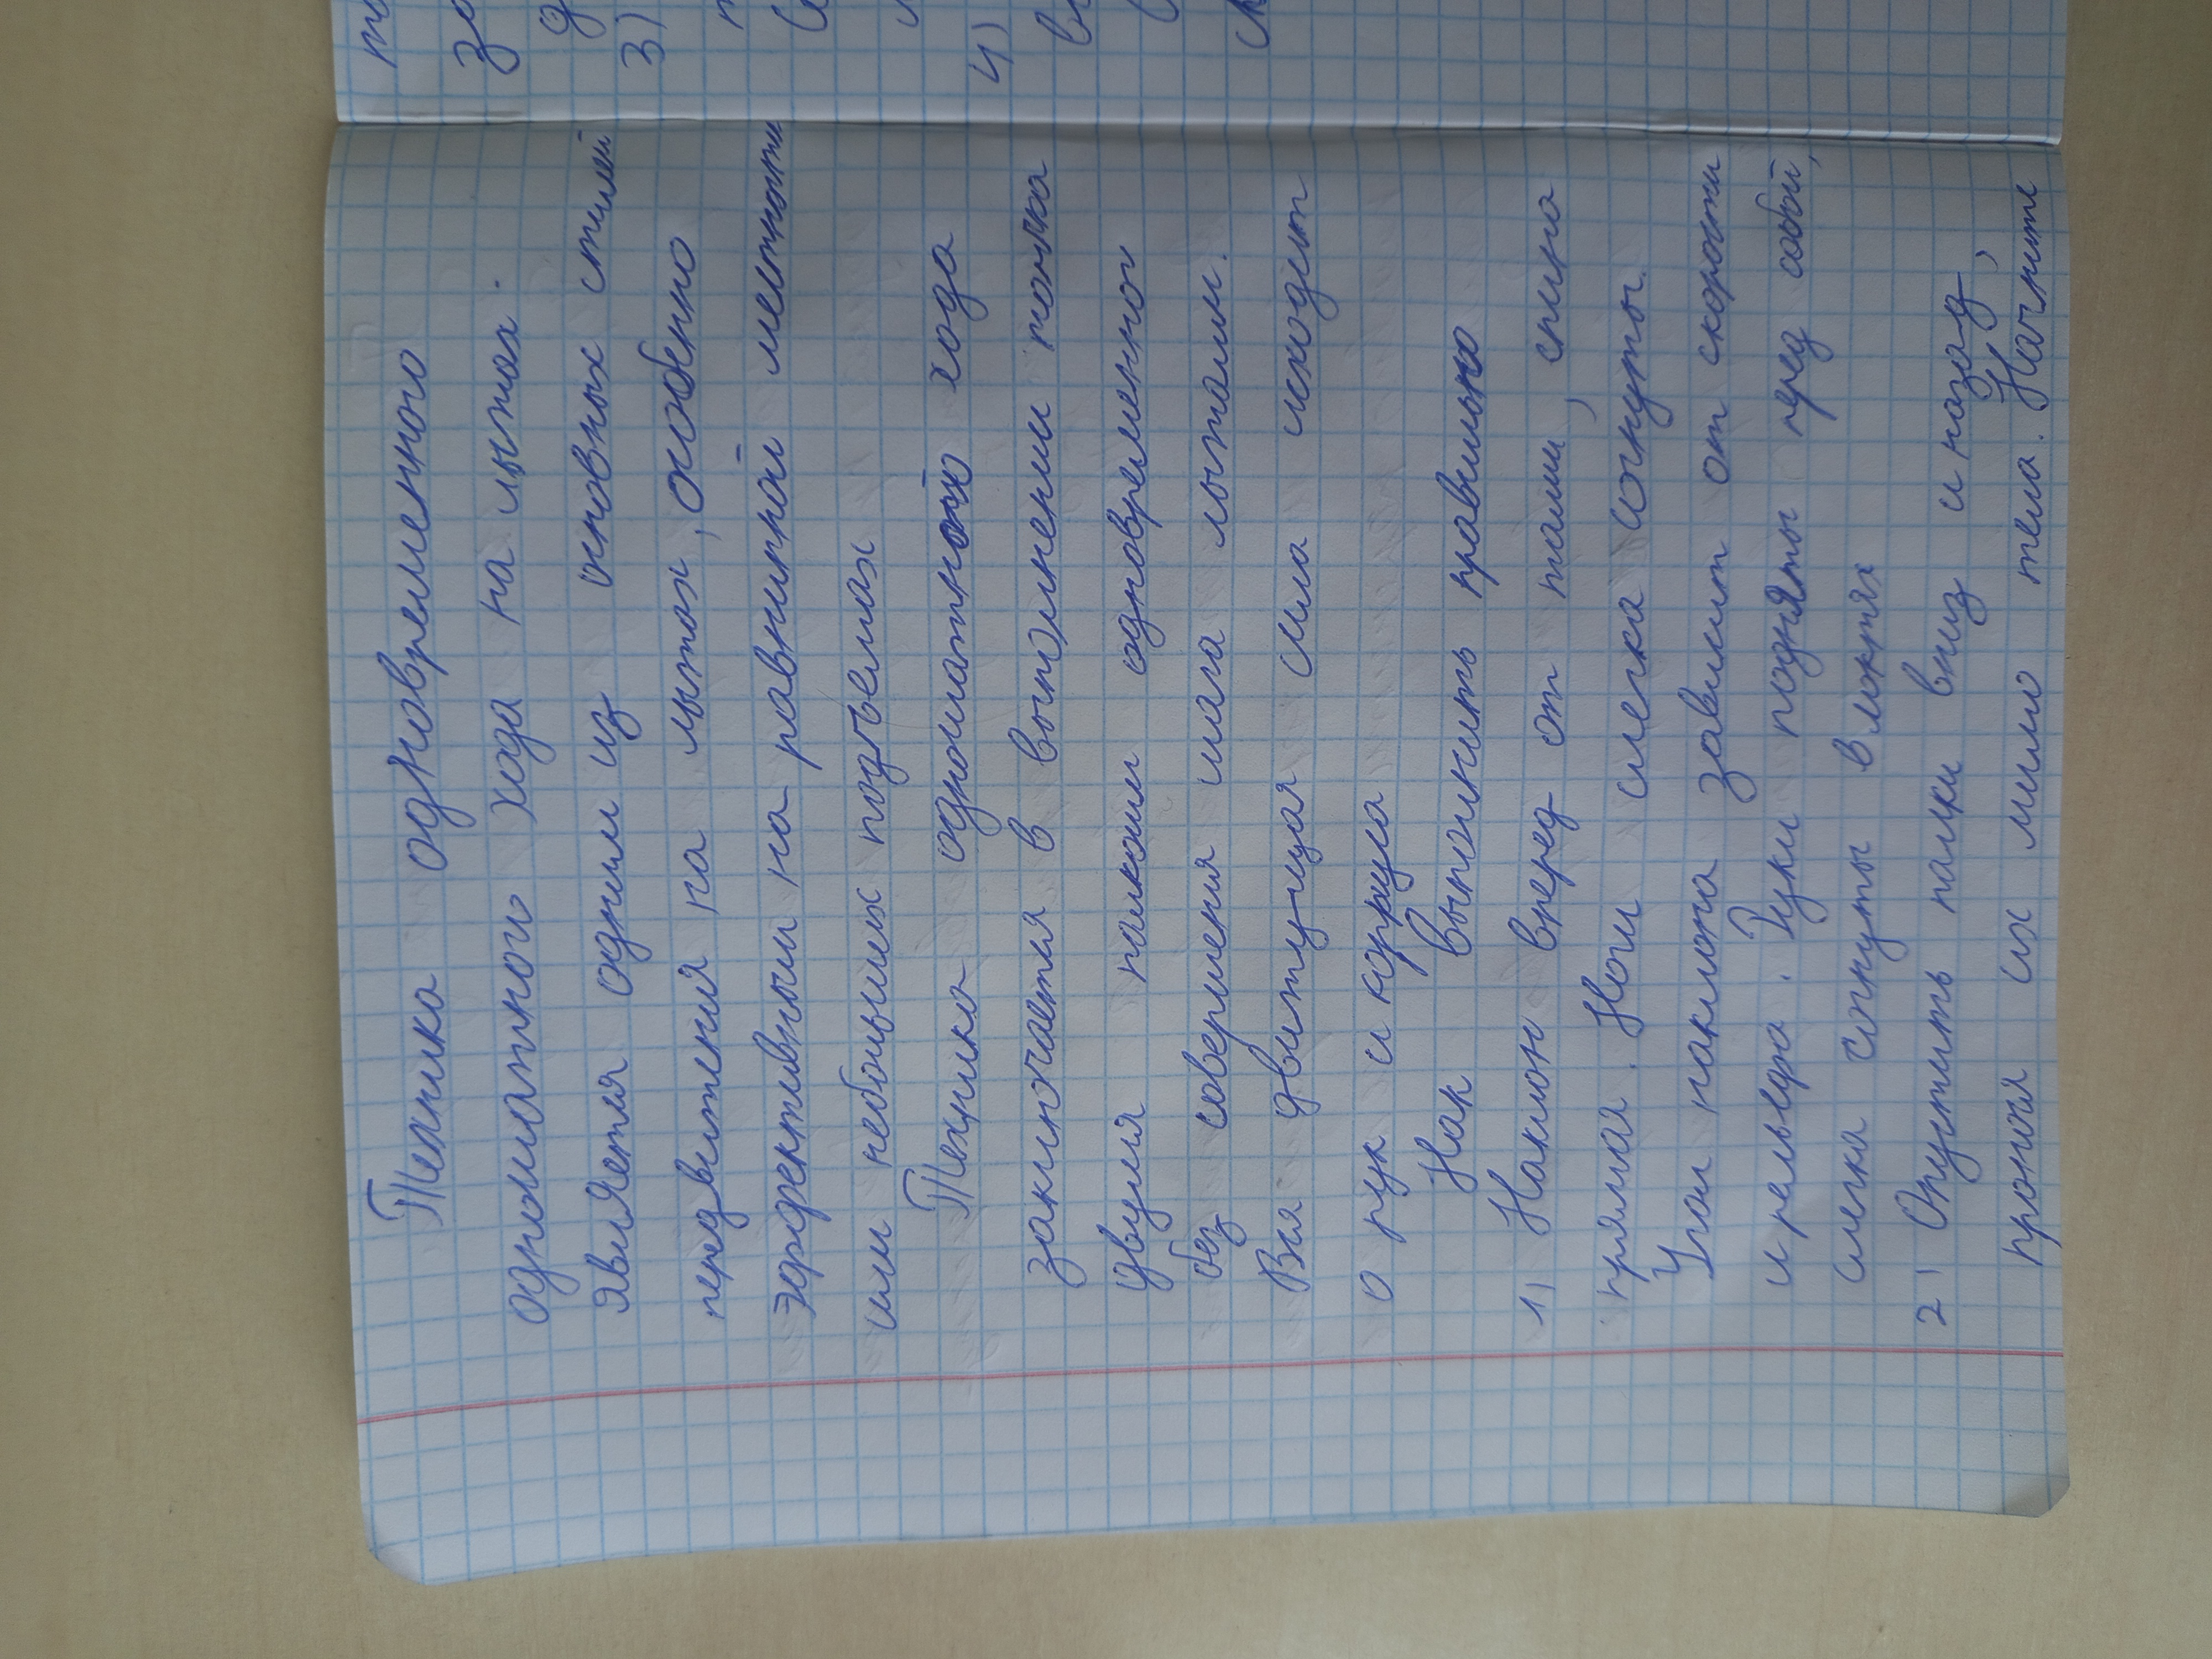 Техника одновременного
одношатного хода на лыжах.
является одним из основных стилей
передвижения на лыжах, особенно
эффективным на равнинной местности
или небольших подъемах
Техника одношатного хода
заключается в выполнении толчка
двумя палками одновременног
без совершения шага лыжами.
Вся движущая сила исходит
о рук и корпуса
Как выполнить правильно
1) Наклон вперед от талии, спина
прямая. Ноги слегка согнуты.
Угол наклона зависит от скорости
и рельефа. Руки подняты пред собой,
слегка согнуты в локтях
2) Опустить палки вниз и назад,
пронося их мимо тела. Начните
3)
4)